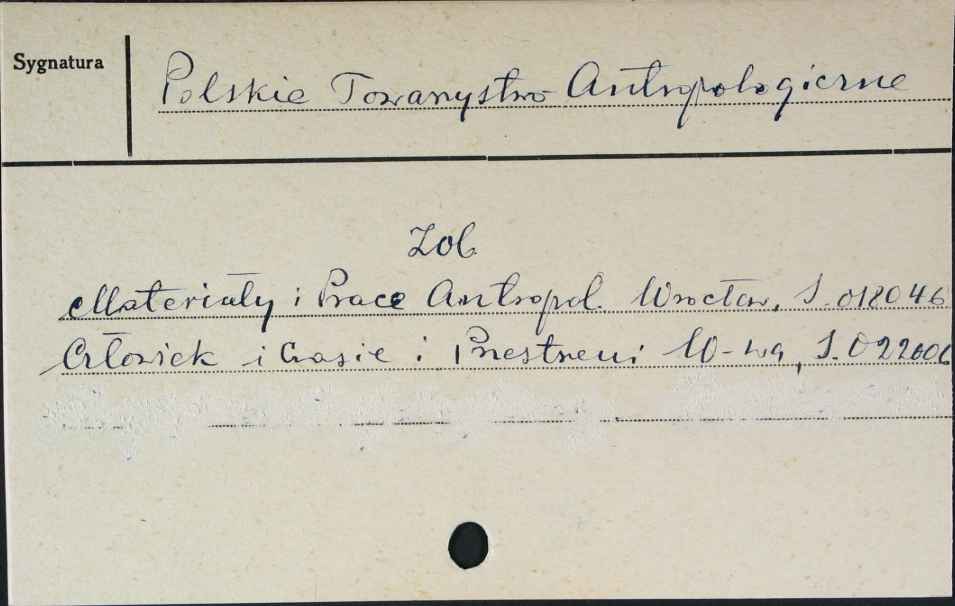 Sygnatura
Polskie Towarzystwo Antropologiczne
Zob
Materiały i Prace Antropol. Wrocław, S. 018046
Człowiek i Czasie i Przestrzeni W-wa, S. 022606